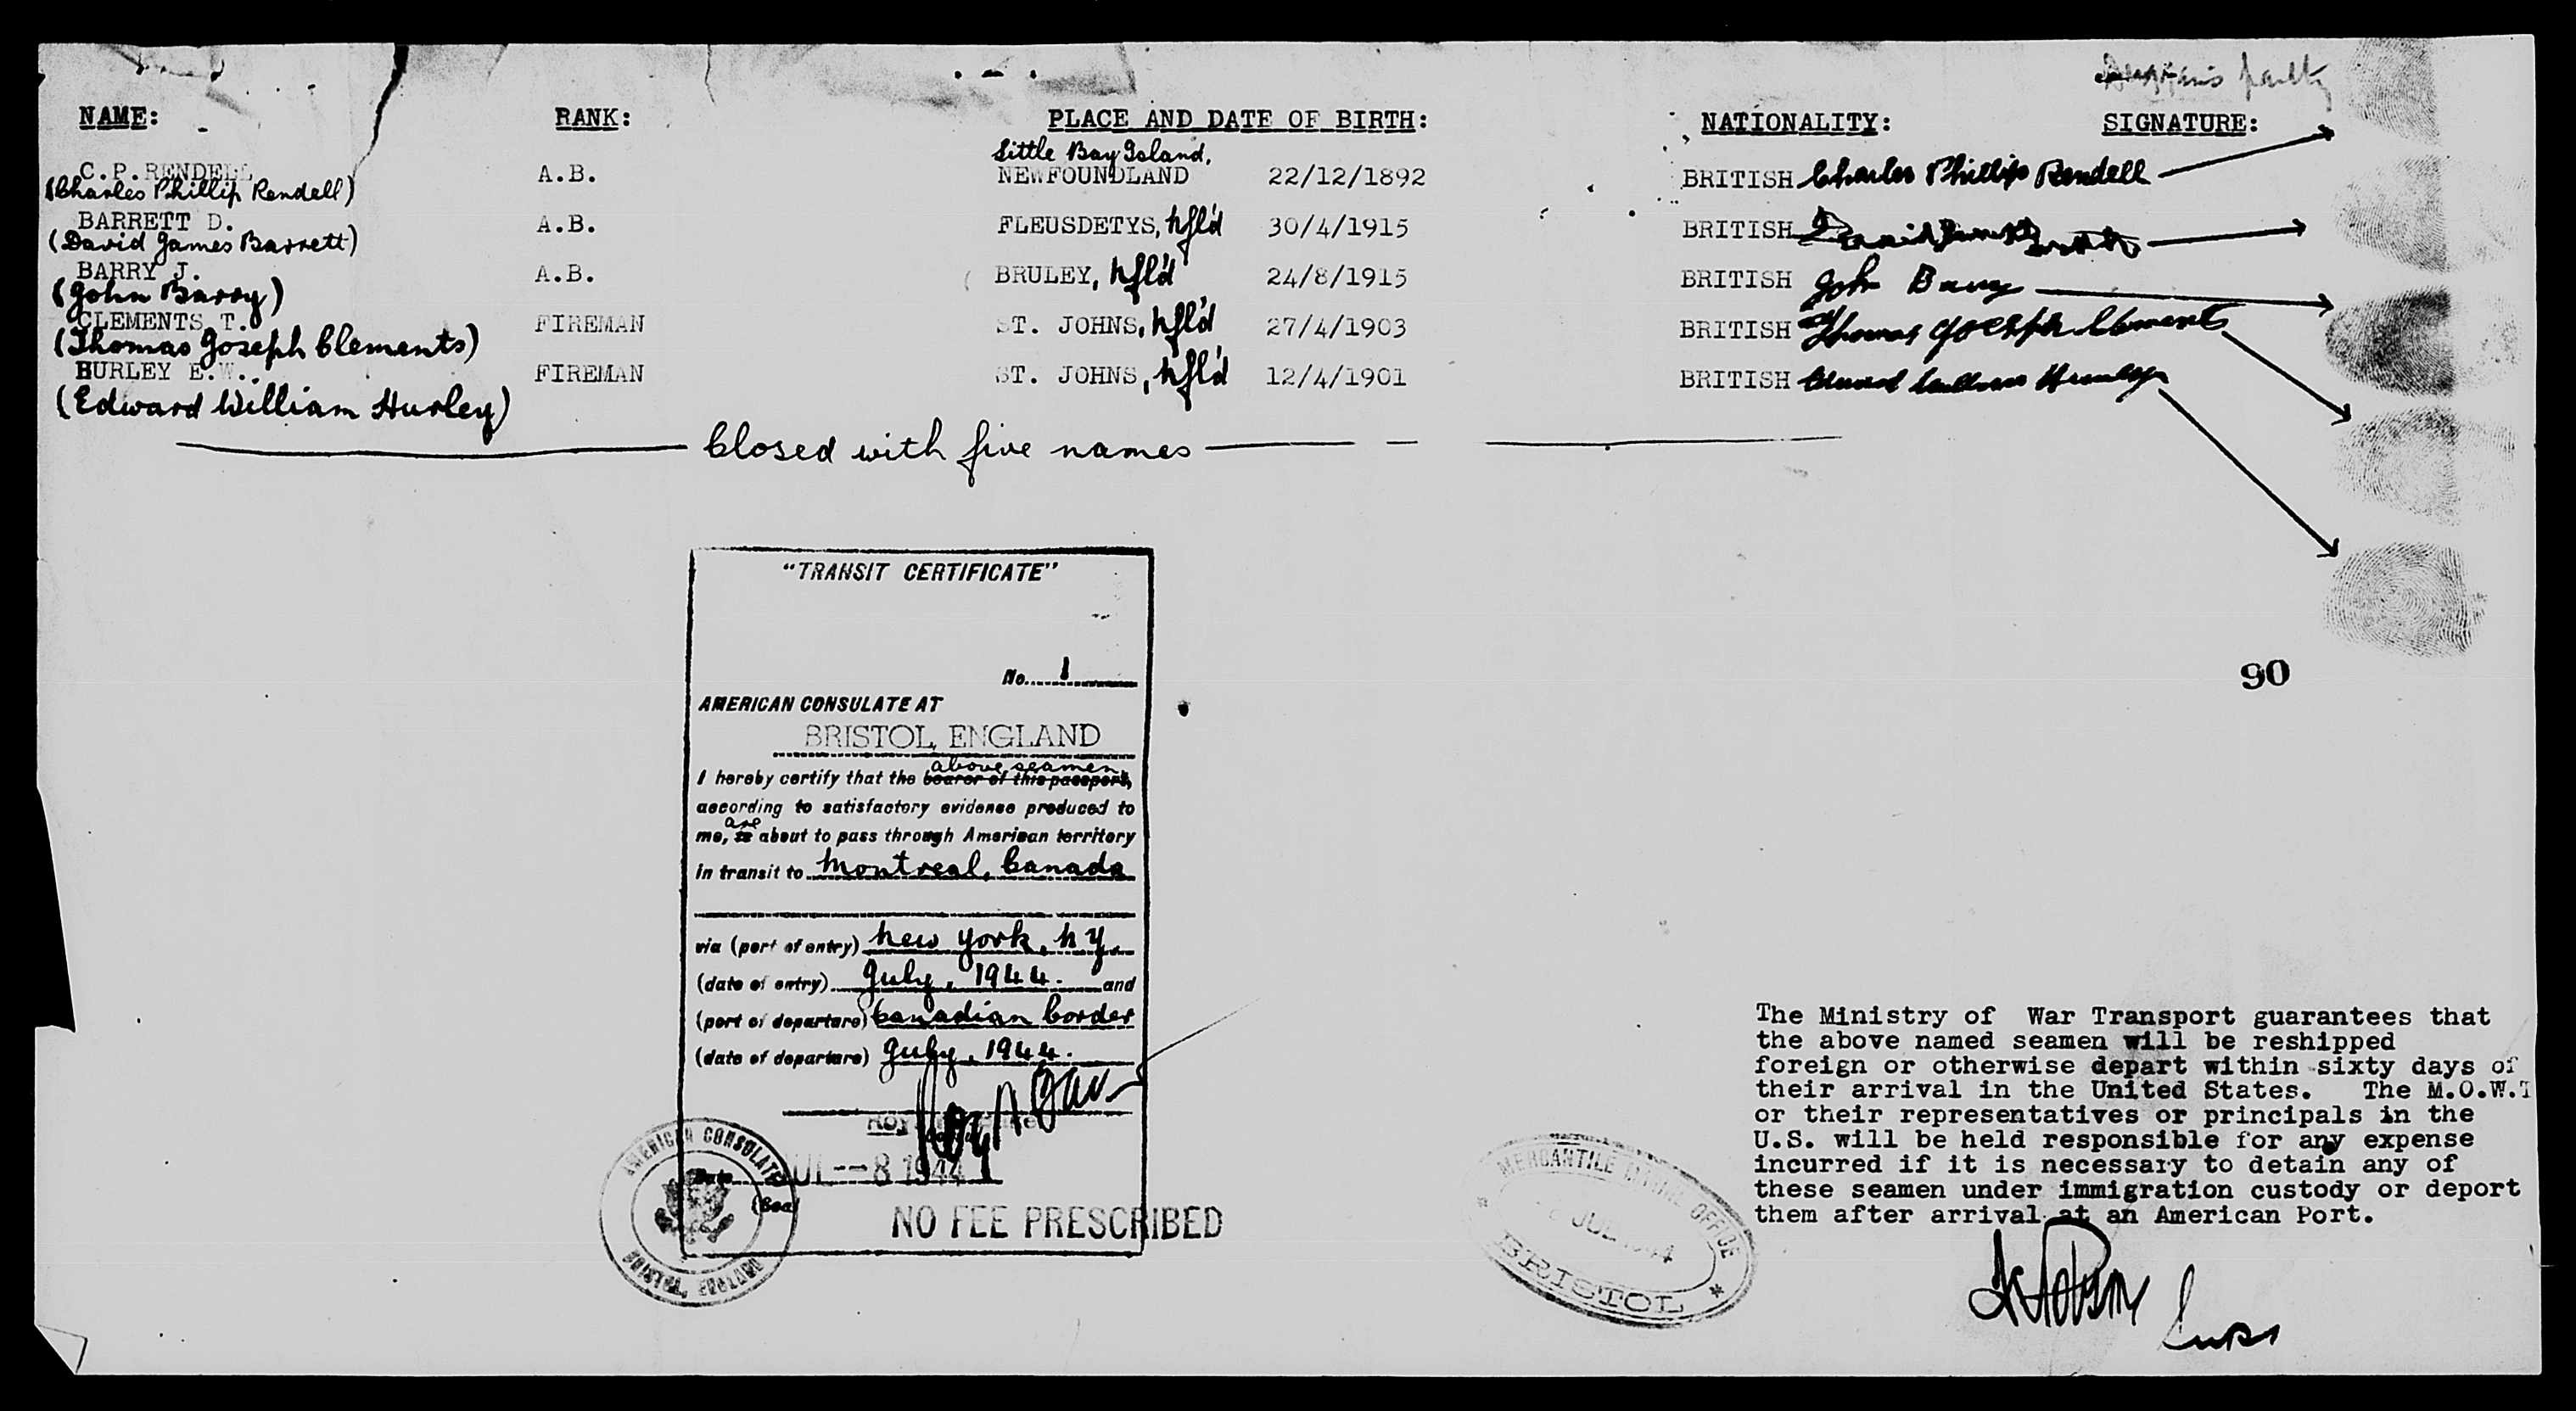 NAME: RANK: PLACE AND DATE OF BIRTH: NATIONALITY: SIGNATURE:
Little Bay Island,
C.P.RENDELL A.B. NEWFOUNDLAND 22/12/1892 BRITISH Charles Phillip Rendell
(Charles Phillip Rendell)
BARRETT D. A.B. FLEUSDETYS, Nfl'd 30/4/1915 BRITISH David James Barrett
(David James Barrett)
BARRY J. A.B. BRULEY, Nfl'd 24/8/1915 BRITISH John Barry
(John Barry)
CLEMENTS T. FIREMAN ST. JOHNS, Nfl'd 27/4/1903 BRITISH Thomas Joseph Clements
(Thomas Joseph Clements)
HURLEY E.W.. FIREMAN ST. JOHNS, Nfl'd 12/4/1901 BRITISH Edward William Hurley
(Edward William Hurley)
Closed with five names
"TRANSIT CERTIFICATE"
No. 1
90
AMERICAN CONSULATE AT
BRISTOL, ENGLAND
above seamen,
I hereby certify that the bearer of this passport,
according to satisfactory evidence produced to
are
me, is about to pass through American territory
in transit to Montreal, Canada
via (port of entry) New York, N.Y.
(date of entry) July, 1944. and
(port of departure) Canadian border
(date of departure) July, 1944.
Date JUL--8 1944
(Seal
NO FEE PRESCRIBED
AMERICAN CONSULATE
BRISTOL, ENGLAND
MERCANTILE MARINE OFFICE
JUL 1944
BRISTOL
The Ministry of War Transport guarantees that
the above named seamen will be reshipped
foreign or otherwise depart within sixty days of
their arrival in the United States. The M.O.W.T
or their representatives or principals in the
U.S. will be held responsible for any expense
incurred if it is necessary to detain any of
these seamen under immigration custody or deport
them after arrival at an American Port.